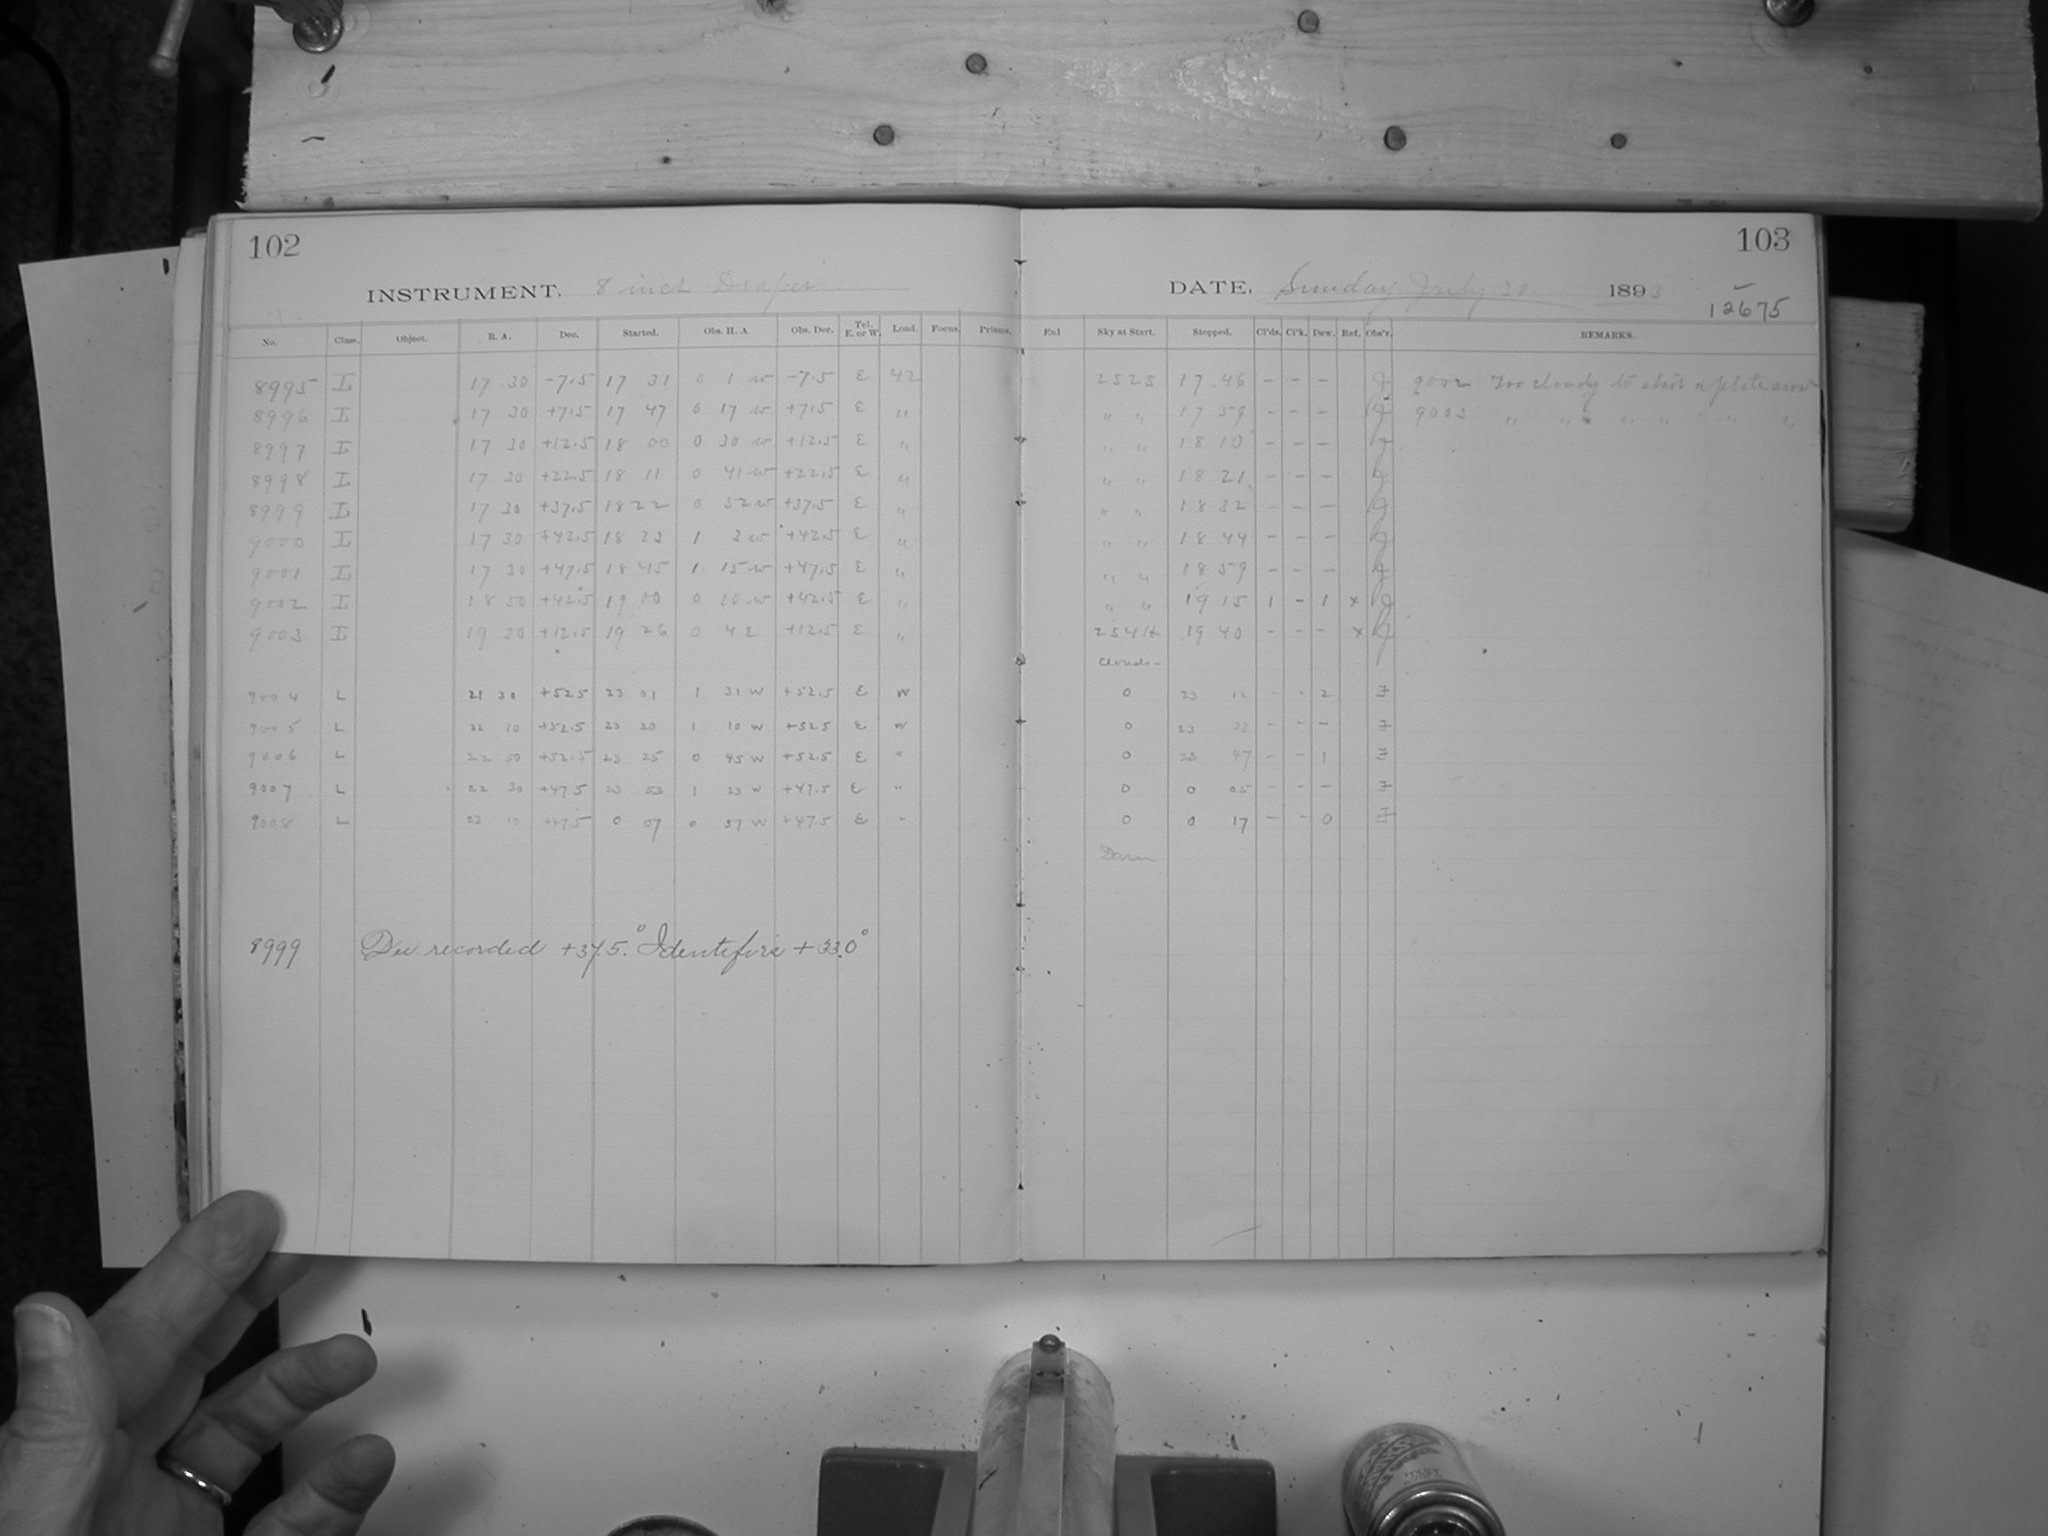 102
INSTRUMENT. 8 inch Draper
No. Class. Object. R. A. Dec. Started. Obs. H. A. Obs. Dec. Tel. E. or W. Load. Focus. Prisms.
8995 L 17 30 -7.5 17 31 0 1 w -7.5 E 42
8996 L 17 30 +7.5 17 47 0 17 w +7.5 E "
8997 L 17 30 +12.5 18 00 0 30 w +12.5 E "
8998 L 17 30 +22.5 18 11 0 41 w +22.5 E "
8999 L 17 30 +37.5 18 22 0 52 w +37.5 E "
9000 L 17 30 +42.5 18 33 1 3 w +42.5 E "
9001 L 17 30 +47.5 18 45 1 15 w +47.5 E "
9002 L 18 50 +42.5 19 00 0 10 w +42.5 E "
9003 L 19 30 +12.5 19 26 0 4 E +12.5 E "
9004 L 21 30 +52.5 23 01 1 31 W +52.5 E W
9005 L 22 10 +52.5 23 20 1 10 W +52.5 E W
9006 L 22 50 +52.5 23 25 0 45 W +52.5 E "
9007 L 22 30 +47.5 23 53 1 23 W +47.5 E "
9008 L 23 10 +47.5 0 07 0 57 W +47.5 E "
8999 Dec recorded +37.5.° Identifies +33.0°
103
DATE, Sunday July 30 1893
12675
Enl Sky at Start. Stopped. Cl'ds. Cl'k. Dew. Ref. Obs'r. REMARKS.
2525 17 46 - - - J 9002 Too cloudy to start a plate
" " 17 59 - - - J 9003 " " " " " " "
" " 18 10 - - - J
" " 18 21 - - - J
" " 18 32 - - - J
" " 18 44 - - - J
" " 18 59 - - - J
" " 19 15 1 - 1 x J
19 40 - - - x J
Clouds-
0 23 12 - - 2 F
0 23 - - - F
0 23 47 - - 1 F
0 0 05 - - - F
0 0 17 - - 0 F
Dawn